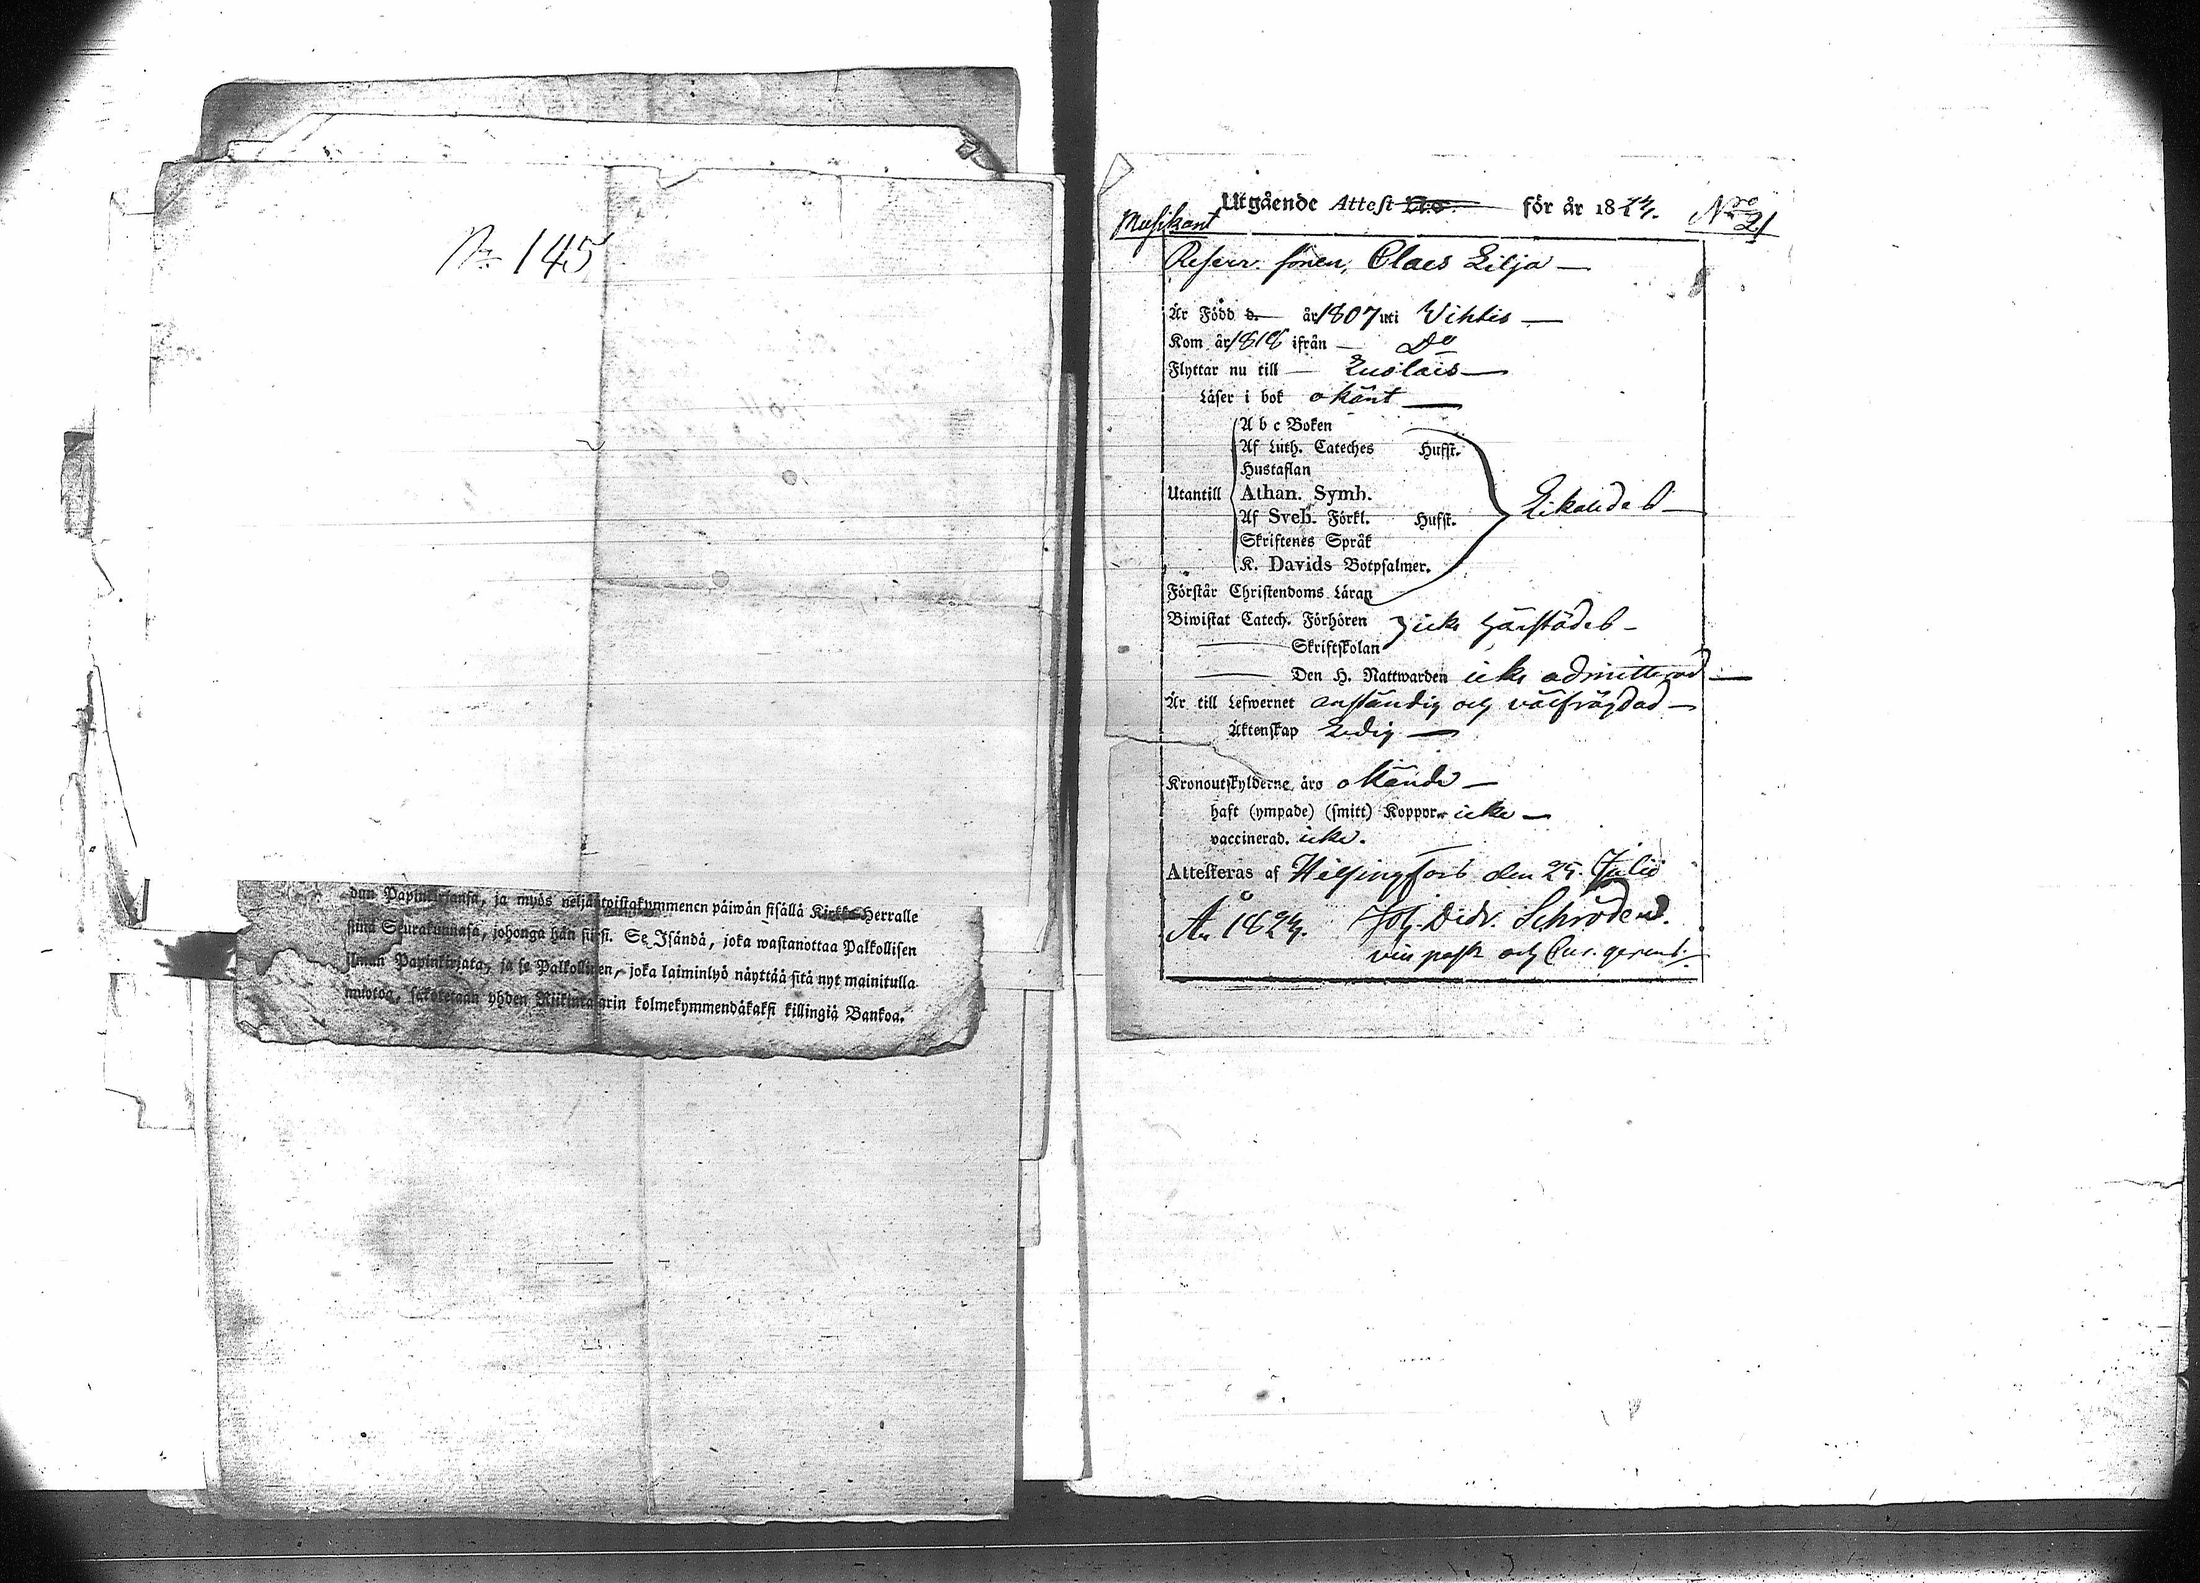 No 145
dun Papinkirjansa, ja myös neljäntoistakymmenen päiwän sisällä Kirkko-Herralle
siinä Seurakunnasa, johonga hän siirsi. Se Isändä, joka wastanottaa Palkollisen
ilman Papinkirjata, ja se Palkollinen, joka laiminlyö näyttää sitä nyt mainitulla
muotoa, sakotetaan yhden Riikintalarin kolmekymmendäkaksi killingiä Bankoa.
Utgående Attest No. för år 1824. Nro 21
Musikant
Reserv. sonen, Claes Lilja
Är Född d. år 1807 uti Vihtis
Kom år 1818 ifrån Do
Flyttar nu till
Läser i bok okänt
A b c Boken
Af Luth. Cateches Hufst.
Hustaflan
Utantill Athan. Symb. Likaledes
Af Sveb. Förkl. Hufst.
Skriftenes Språk
K. Davids Botpsalmer.
Förstår Christendoms Läran
Biwistat Catech. Förhören icke härstädes
Skriftskolan
Den H. Nattwarden icke admitterad
Är till Lefwernet anständig och välfrägdad
Äktenskap Ledig
Kronoutskylderne äro okände
haft (ympade) (smitt) Koppor icke
vaccinerad. icke.
Attesteras af Helsingfors den 25. Julii
År 1824. Joh. Didr. Schröder.
vice past. och Cur. gerens.